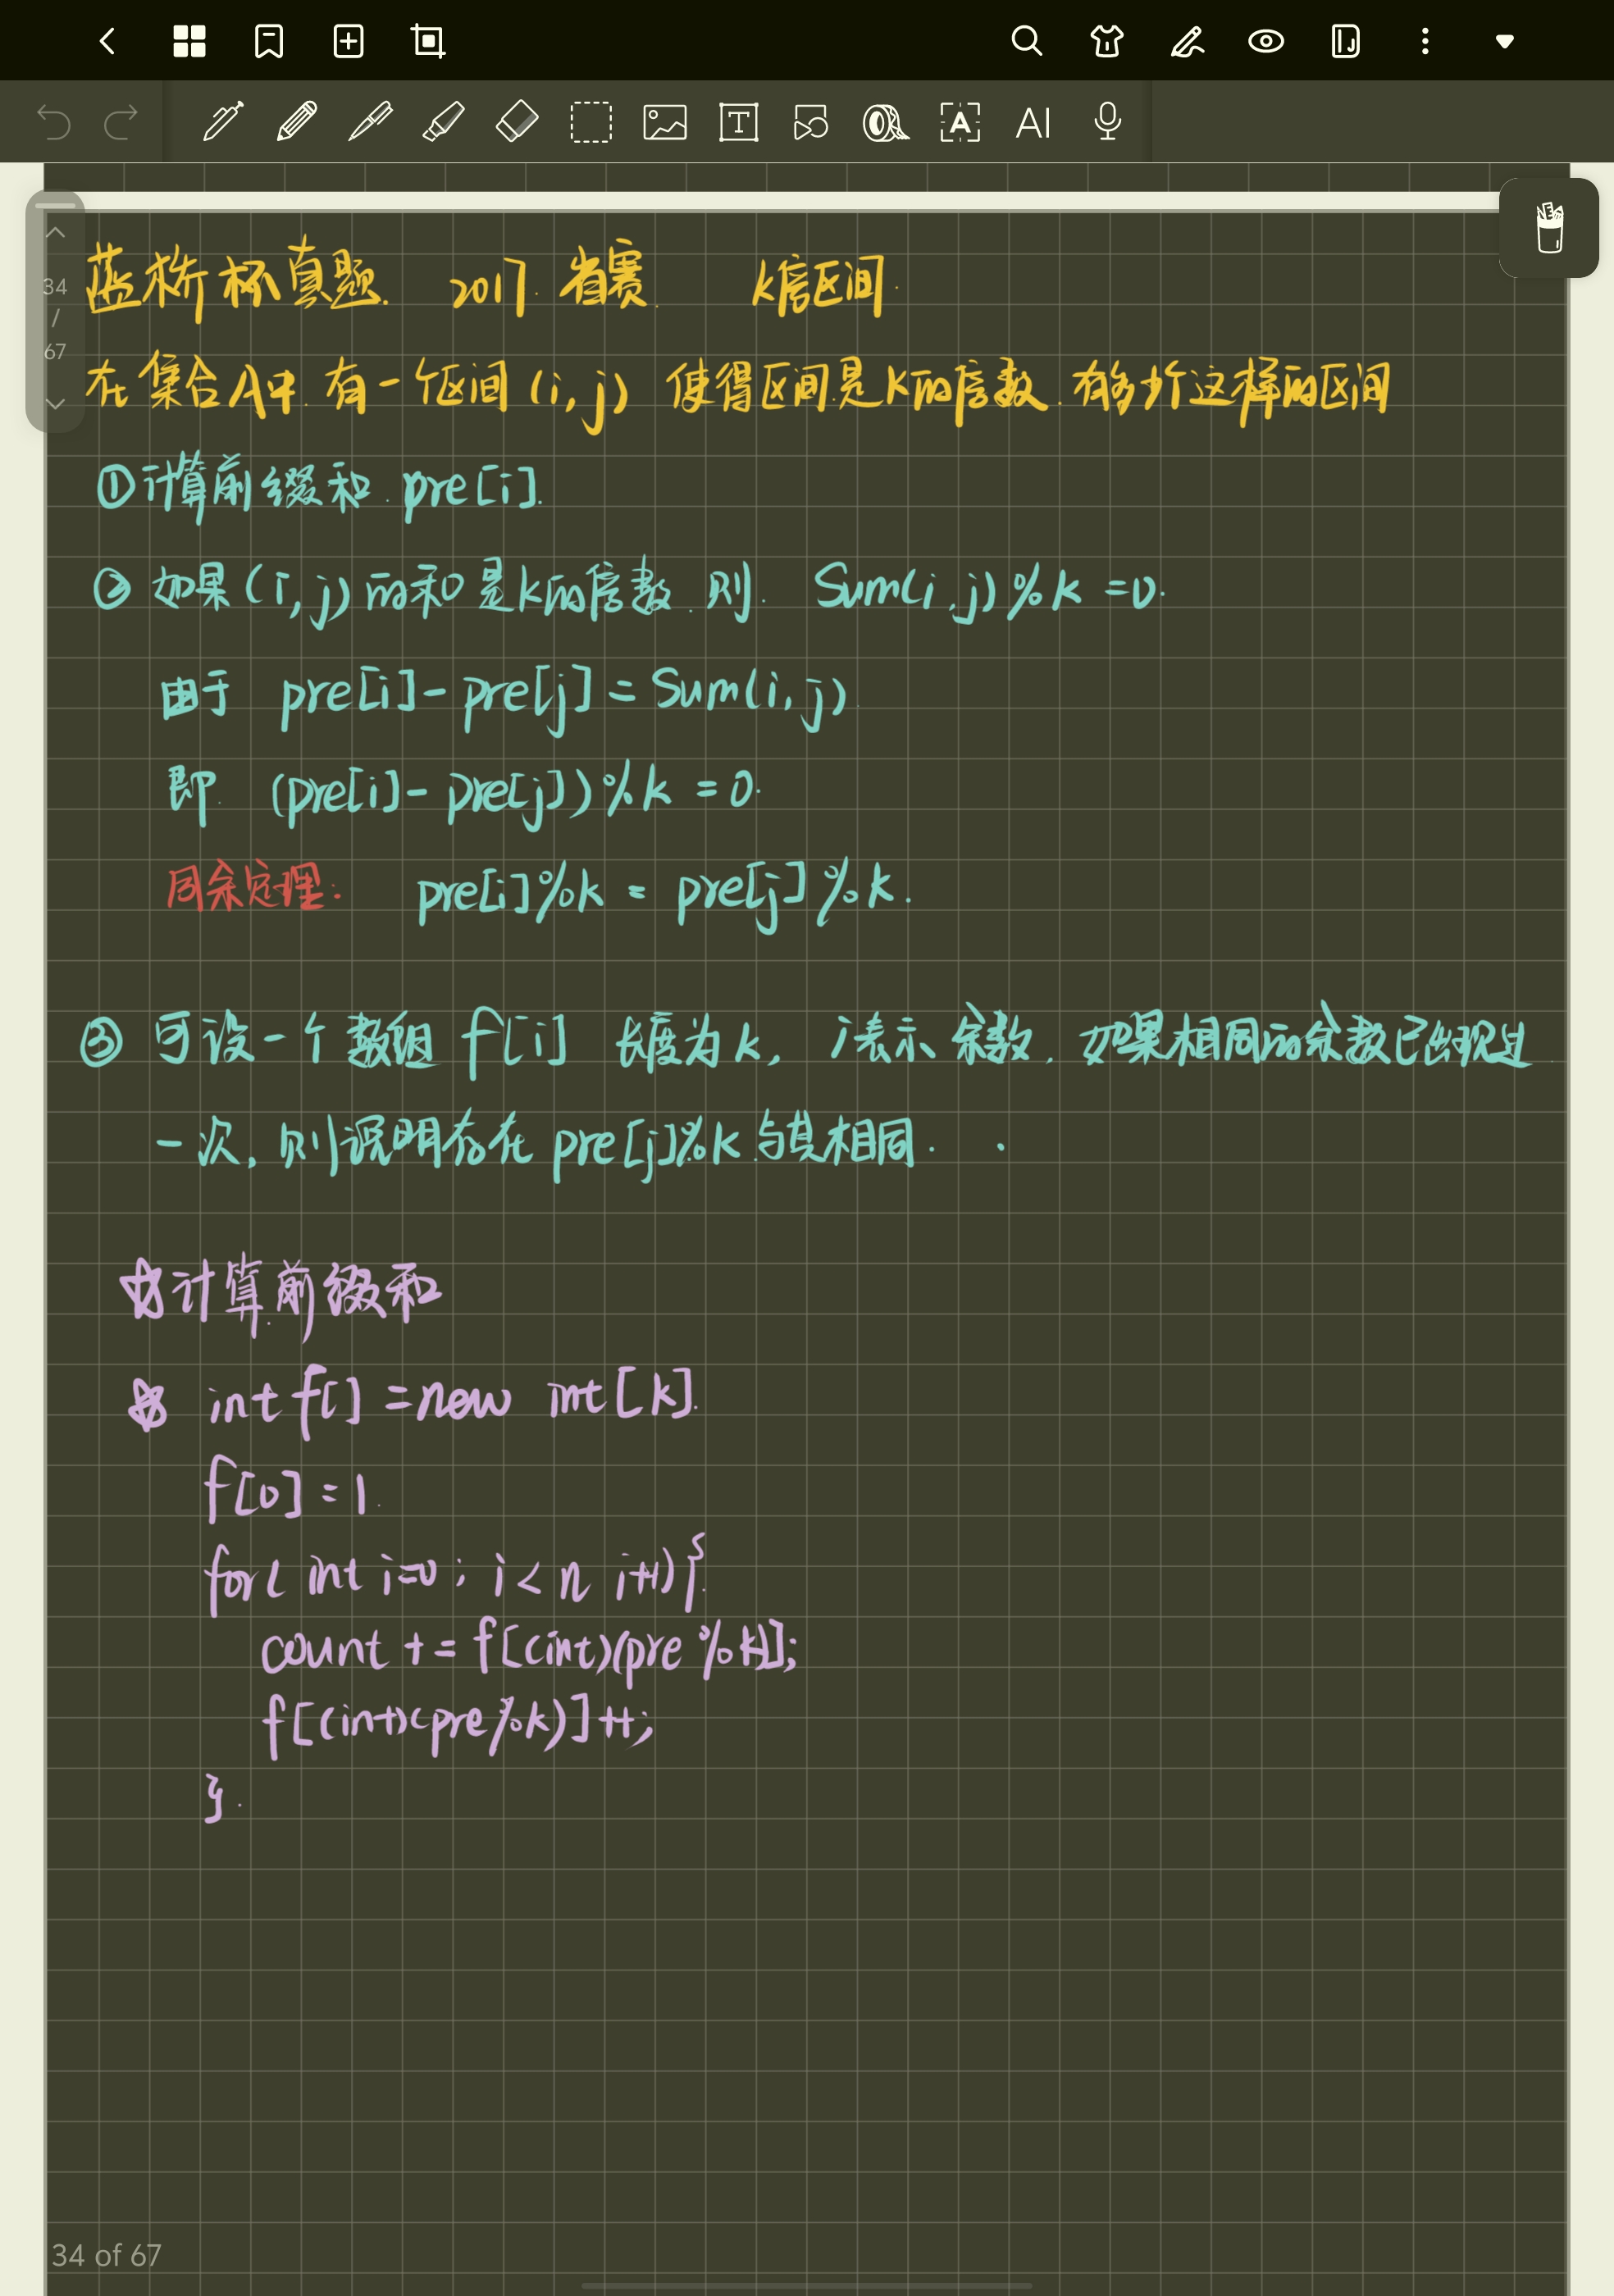 34
/
67
蓝桥杯真题. 2017. 省赛. k倍区间.
在集合A中.有一个区间(i,j) 使得区间是K的倍数.有多少个这样的区间
①计算前缀和.pre[i].
② 如果(i,j)的和是k的倍数.则. Sum(i,j)%k=0.
由于 pre[i]-pre[j]=Sum(i,j).
即. (pre[i]-pre[j])%k=0.
同余定理: pre[i]%k = pre[j]%k.
③ 可设一个数组 f[i] 长度为k, i表示余数.如果相同的余数已出现过.
一次,则说明存在 pre[j]%k与其相同.
☆计算前缀和
☆ int f[] =new int[k].
f[0]=1.
for( int i=0; i<n i++){
count += f[(int)(pre%k)];
f[(int)(pre%k)]++;
}.
34 of 67